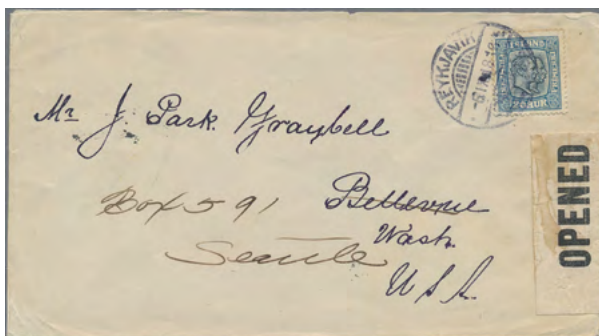 REYKJAVIK
ISLAND
20 AUR
Mr J. Park. Graybell
Box 591 Bellevue
Seattle Wash.
U S A
OPENED